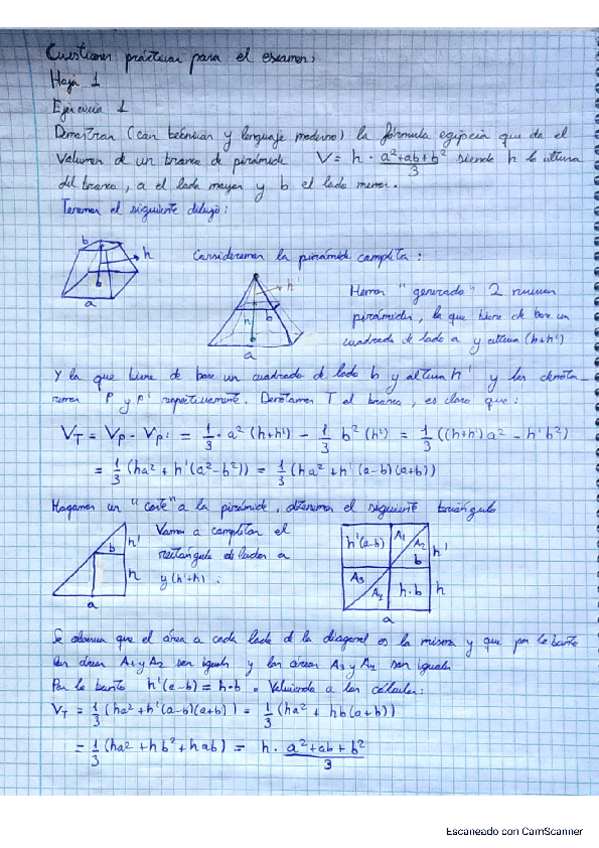 Cuestiones prácticas para el examen:
Hoja 1
Ejercicio 1
Demostrar (con técnicas y lenguaje moderno) la fórmula egipcia que da el
Volumen de un tronco de pirámide V = h · (a²+ab+b²)/3 siendo h la altura
del tronco, a el lado mayor y b el lado menor.
Tenemos el siguiente dibujo:
b
h
b
a
Consideremos la pirámide completa:
h'
h
b
a
Hemos "generado" 2 nuevas
pirámides, la que tiene de base un
cuadrado de lado a y altura (h+h')
Y la que tiene de base un cuadrado de lado b y altura h' y las denota-
remos P y P' respectivamente. Denotamos T el tronco, es claro que:
V_T = V_P - V_P' = 1/3 · a² (h+h') - 1/3 b² (h') = 1/3 ((h+h')a² - h'b²)
= 1/3 (ha² + h'(a²-b²)) = 1/3 (ha² + h'(a-b)(a+b))
Hagamos un "corte" a la pirámide, obtenemos el siguiente triángulo
b
h'
h
a
Vamos a completar el
rectángulo de lados a
y (h'+h) :
h'(a-b)
A1
A2
b
h'
A3
A4
h·b
h
a
Se observa que el área a cada lado de la diagonal es la misma y que por lo tanto
las áreas A1 y A2 son iguales y las áreas A3 y A4 son iguales
Por lo tanto h'(a-b) = h·b . Volviendo a los cálculos:
V_T = 1/3 (ha² + h'(a-b)(a+b)) = 1/3 (ha² + hb(a+b))
= 1/3 (ha² + hb² + hab) = h · (a²+ab+b²)/3
Escaneado con CamScanner